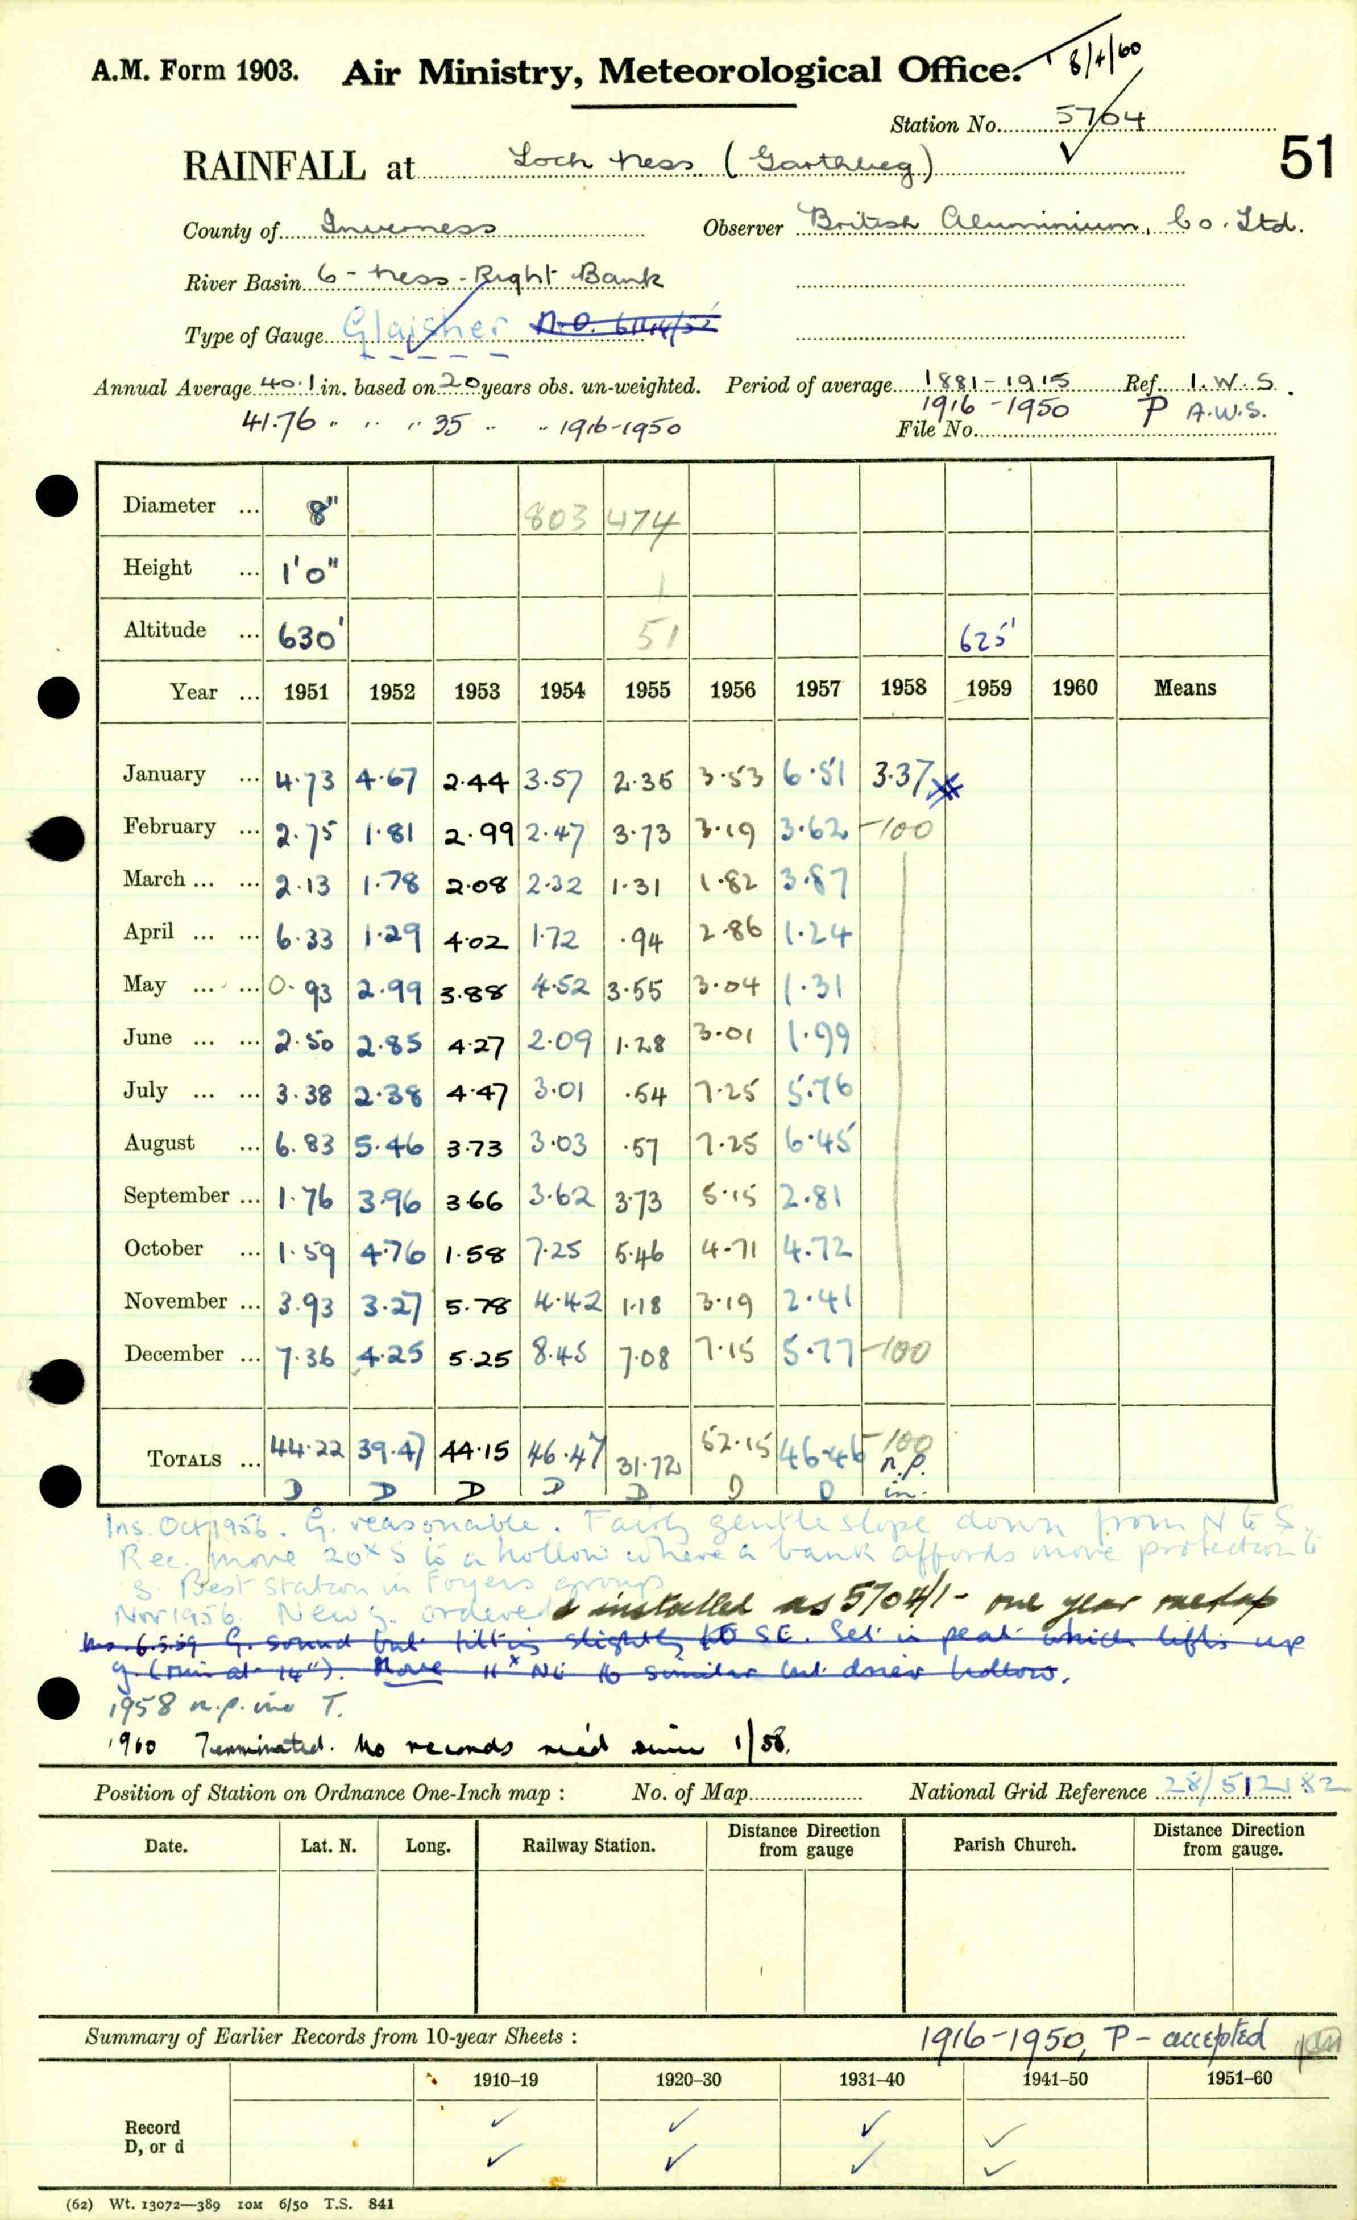 8/4/60
A.M. Form 1903. Air Ministry, Meteorological Office.
Station No. 5704
51
RAINFALL at Loch Ness (Garthbeg)
County of Inverness Observer British Aluminium, Co. Ltd.
River Basin 6 - Ness - Right Bank
Type of Gauge Glaisher
Annual Average 40.1 in. based on 20 years obs. un-weighted. Period of average 1881-1915 Ref. I.W.S.
41.76 " " " 35 " " 1916-1950 1916-1950 P A.W.S.
File No.
Diameter ... 8" 803 474
Height ... 1'0" 1
Altitude ... 630' 51 625'
Year ... 1951 1952 1953 1954 1955 1956 1957 1958 1959 1960 Means
January ... 4.73 4.67 2.44 3.57 2.35 3.53 6.51 3.37
February ... 2.75 1.81 2.99 2.47 3.73 3.19 3.62 -100
March ... ... 2.13 1.78 2.08 2.32 1.31 1.82 3.87
April ... ... 6.33 1.29 4.02 1.72 .94 2.86 1.24
May ... ... 0.93 2.99 3.88 4.52 3.55 3.04 1.31
June ... ... 2.50 2.85 4.27 2.09 1.28 3.01 1.99
July ... ... 3.38 2.38 4.47 3.01 .54 7.25 5.76
August ... 6.83 5.46 3.73 3.03 .57 7.25 6.45
September ... 1.76 3.96 3.66 3.62 3.73 5.15 2.81
October ... 1.59 4.76 1.58 7.25 5.46 4.71 4.72
November ... 3.93 3.27 5.78 4.42 1.18 3.19 2.41
December ... 7.36 4.25 5.25 8.45 7.08 7.15 5.77 -100
TOTALS ... 44.22 39.47 44.15 46.47 31.72 52.15 46.46 -100
n.p.
D D D D D D D in.
Ins. Oct 1956. G. reasonable. Fairly gentle slope down from N to S.
Rec. move 20x S to a hollow where a bank affords more protection to
g. Best station in Foyers group
Nov 1956. New g. ordered & installed as 5704/1 - one year overlap
Ins. 6.5.59 G. sound but tilting slightly to SE. Set in peat which lifts up
g. (rim at 14"). Move 11x NE to similar but drier hollow.
1958 n.p. ino T.
1960 Terminated. No records rec'd since 1/58.
Position of Station on Ordnance One-Inch map : No. of Map National Grid Reference 28/512182
Date. Lat. N. Long. Railway Station. Distance from Direction gauge Parish Church. Distance from Direction gauge.
Summary of Earlier Records from 10-year Sheets : 1916-1950, P - accepted
1910–19 1920–30 1931–40 1941–50 1951–60
Record
D, or d
(62) Wt. 13072—389 10M 6/50 T.S. 841